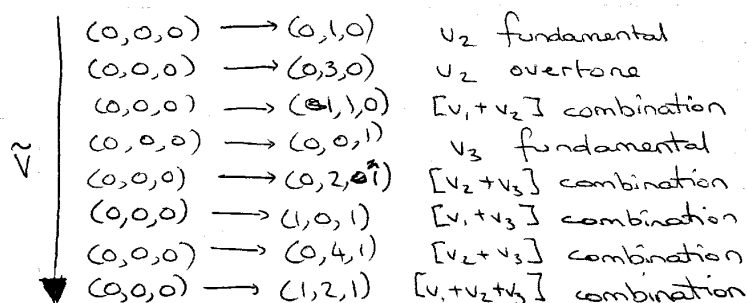 (0,0,0) → (0,1,0) v₂ fundamental
(0,0,0) → (0,3,0) v₂ overtone
(0,0,0) → (1,1,0) [v₁+v₂] combination
(0,0,0) → (0,0,1) v₃ fundamental
(0,0,0) → (0,2,1) [v₂+v₃] combination
(0,0,0) → (1,0,1) [v₁+v₃] combination
(0,0,0) → (0,4,1) [v₂+v₃] combination
(0,0,0) → (1,2,1) [v₁+v₂+v₃] combination
ṽ